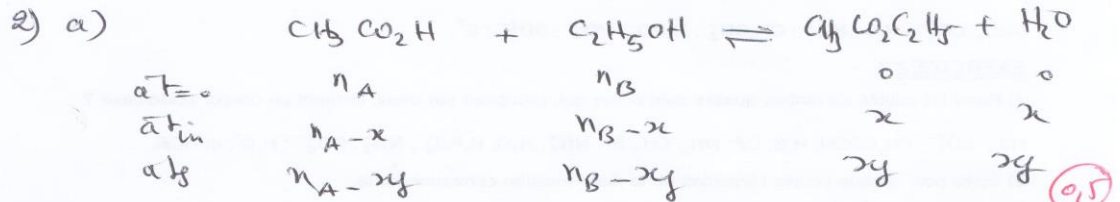 2) a) CH3 CO2H + C2H5OH ⇌ CH3 CO2C2H5 + H2O
at=0 nA nB 0 0
at in nA-x nB-x x x
atf nA-xf nB-xf xf xf
0,5